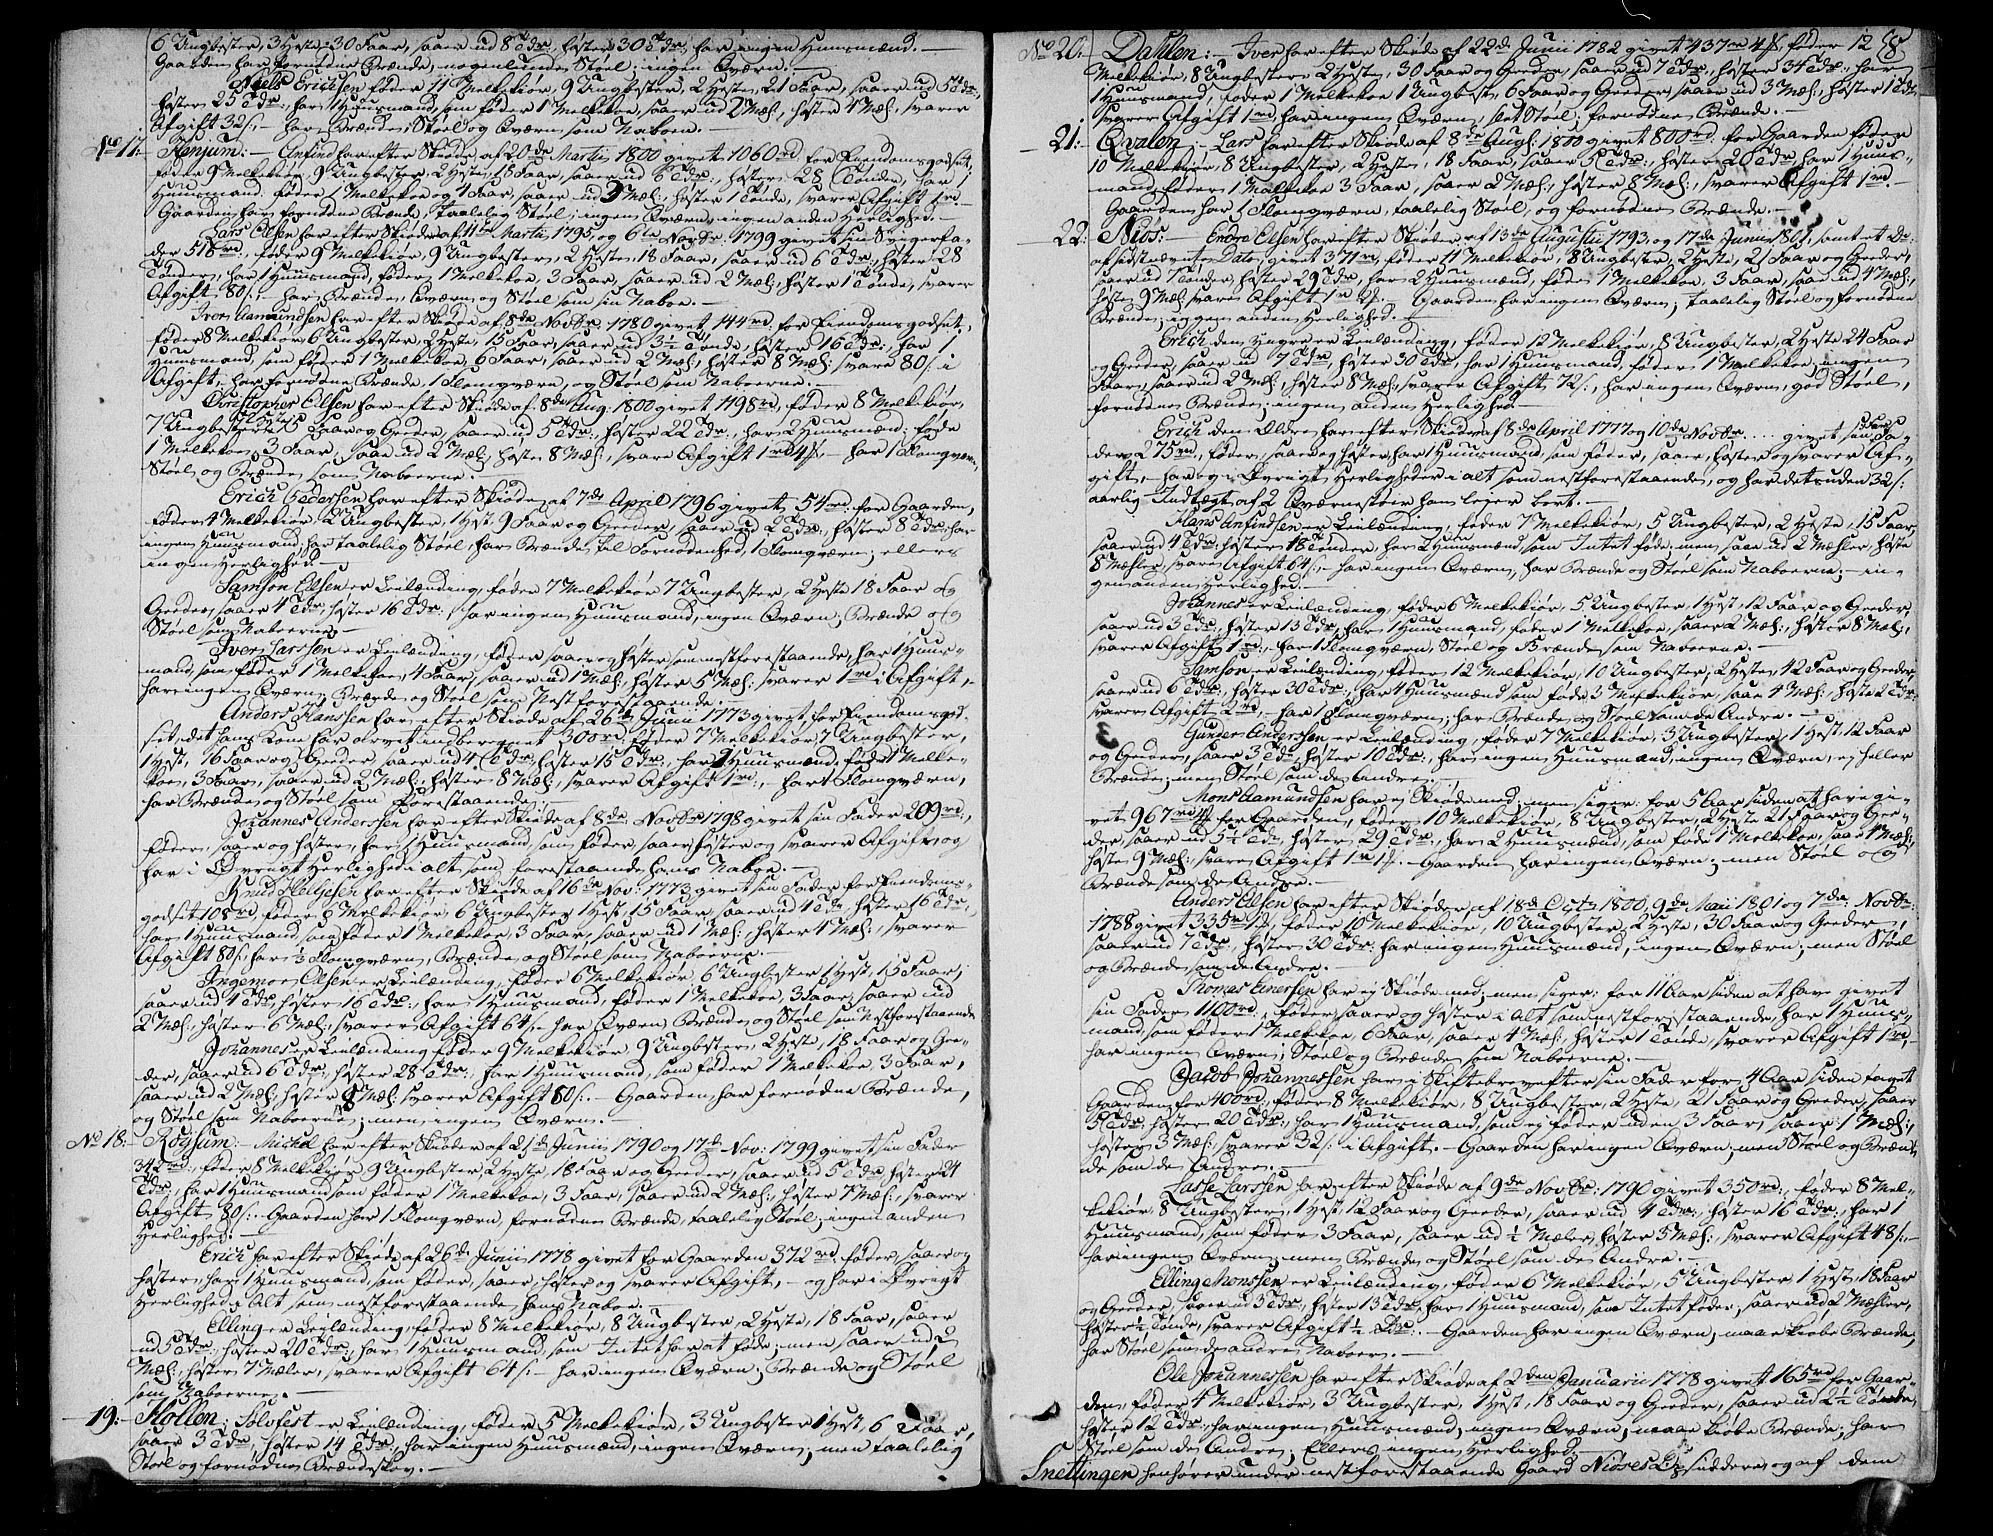 6 Ungbester, 3 Heste, 30 Faar, saaer ud 8 Tdr:, høster 30 Tdr:, har ingen Huusmænd. –
Gaarden har fornødne Brænde, nogenlunde Støel; ingen Qværn. –
Niels Erichsen føder 11 Melkekiør, 9 Ungbester, 2 Heste, 21 Faar, saaer ud 5 Tdr:,
høster 25 Tdr:, har 1 Huusmand, som føder 1 Melkekoe, saaer ud 2 Mæl:, høster 4 Mæl:, svarer
Afgift 32 s., – har Brænde, Støel og Qværn som Naboen. –
No 17. Henjum: – Anfind har efter Skiøde af 20de Martii 1800 givet 1060 rd for Eiendomsgodset;
føder 9 Melkekiør, 9 Ungbester, 2 Heste, 15 Faar, saaer ud 6 Tdr:, høster 28 Tønder, har 1
Huusmand, føder 1 Melkekoe og 4 Faar, saaer ud 3 Mæl:, høster 1 Tønde, svarer Afgift 1 rd –
Gaarden har fornødne Brænde, taalelig Støel; ingen Qværn, ingen anden Herlighed. –
Lars Olsen har efter Skiøder af 11te Martii 1795, og 6te Novbr: 1799 givet sin Svigerfa-
der 518 rd:, føder 9 Melkekiør, 9 Ungbester, 2 Heste, 18 Faar, saaer ud 6 Tdr:, høster 28
Tønder, har 1 Huusmand, føder 1 Melkekoe, 3 Faar, saaer ud 2 Mæl:, høster 1 Tønde, svarer
Afgift 80 s., – har Brænde, Qværn og Støel som sin Naboe. –
Iver Aamundsen har efter Skiøde af 8de Novbr: 1780 givet 144 rd for Eiendomsgodset,
føder 8 Melkekiør, 6 Ungbester, 2 Heste, 15 Faar, saaer ud 3½ Tønde, høster 16 Tdr:, har 1
Huusmand, som føder 1 Melkekoe, 6 Faar, saaer ud 2 Mæl:, høster 8 Mæl: svarer 80 s. i
Afgift, – har fornødne Brænde, 1 Flomqværn, og Støel som Naboerne. –
Christopher Olsen har efter Skiøde af 8de Aug: 1800 givet 1198 rd, føder 8 Melkekiør,
7 Ungbester, 2 Heste, 15 Faar og Geeder, saaer ud 5 Tdr:, høster 22 Tdr:, har 2 Huusmænd, føde
1 Melkekoe, 3 Faar, saae ud 2 Mæl:, høste 8 Mæl:, svare Afgift 1 rd 4 s. – har 1 Flomqværn,
Støel og Brænde som Naboerne. –
Erich Pedersen har efter Skiøde af 7de April 1796 givet 54 rd: for Gaarden,
føder 4 Melkekiør, 2 Ungbester, 1 Hest, 9 Faar og Geeder, saaer ud 2 Tdr:, høster 8 Tdr: har
ingen Huusmand; har taalelig Støel, har Brænde til Fornødenhed, 1 Flomqværn; ellers
ingen Herlighed. –
Samson Olsen er Leilænding, føder 7 Melkekiør, 7 Ungbester, 2 Heste, 18 Faar og
Geeder, saaer 4 Tdr:, høster 16 Tdr:, har ingen Huusmand, ingen Qværn; Brænde og
Støel som Naboerne. –
Iver Larssen er Leilænding, føder saaer og høster som nestforestaaende, har 1 Huus-
mand, som føder 1 Melkekoe, 4 Faar, saaer ud 1 Mæl:, høster 5 Mæl: svarer 1 rd: i Afgift,
har ingen Qværn, Brænde og Støel som Nestforestaaende. –
Anders Hanssen har efter Skiøde af 26de Junii 1773 givet for Eiendomsgod-
set, det hans Kone har arvet indberegnet, 300 rd, føder 7 Melkekiør, 7 Ungbester,
1 Hest, 16 Faar og Geeder, saaer ud 4 Tdr:, høster 15 Tdr:, har 1 Huusmand, føder 1 Melke-
koe, 3 Faar, saaer ud 2 Mæl:, høster 8 Mæl:, svarer Afgift 1 rd:, – har 1 Flomqværn,
har Brænde og Støel som forestaaende. –
Johannes Anderssen har efter Skiøde af 8de Novbr: 1798 givet sin Fader 209 rd:,
føder, saaer og høster, har 1 Huusmand, som føder, saaer, høster og svarer Afgift, og
har i Øvrigt Herlighed i alt som forestaaende hans Naboe. –
Knud Helgesen har efter Skiøde af 16de Nov: 1773 givet sin Fader for Eiendoms-
godset 108 rd, føder 6 Melkekiør, 6 Ungbester, 1 Hest, 15 Faar, saaer ud 4 Tdr:, høster 16 Tdr:,
har 1 Huusmand som føder 1 Melkekoe, 3 Faar, saaer ud 1 Mæl:, høster 4 Mæl:, svarer
Afgift 80 s., har ½ Flomqværn, Brænde, og Støel som Naboerne. –
Ingemor Olsen er Leilænding, føder 6 Melkekiør, 6 Ungbester, 1 Hest, 15 Faar,
saaer ud 4 Tdr:, høster 16 Tdr:, har 1 Huusmand, føder 1 Melkekoe, 3 Faar, saaer ud
2 Mæl:, høster 6 Mæl:, svarer Afgift 64 s., har Qværn, Brænde og Støel som Nestforstaaende
Johannes er Leilænding, føder 9 Melkekiør, 9 Ungbester, 2 Heste, 18 Faar og Gee-
der, saaer ud 6 Tdr:, høster 28 Tdr:, har 1 Huusmand, som føder 1 Melkekoe, 3 Faar,
saaer ud 2 Mæl: høster 8 Mæl: svarer Afgift 80 s. – Gaarden har fornødne Brænde,
og Støel som Naboerne; men ingen Qværn. –
No 18. Røysum: – Michel har efter Skiøder af 21de Junii 1790 og 17de Nov: 1799 givet sin Fader
342 rd:, føder 8 Melkekiør, 9 Ungbester, 2 Heste, 18 Faar og Geeder, saaer ud 5 Tdr: høster 24
Tdr:, har 1 Huusmand som føder 1 Melkekoe, 3 Faar, saaer ud 2 Mæl:, høster 7 Mæl:, svarer
Afgift 80 s. – Gaarden har 1 Flomqværn, fornødne Brænde, taalelig Støel; ingen anden
Herlighed. –
Erich har efter Skiøde af 26de Junii 1778 givet for Gaarden 372 rd: føder, saaer og
høster, har 1 Huusmand, som føder, saaer, høster og svarer Afgift, – og har i Øvrigt
Herlighed i Alt som nestforestaaende hans Naboe. –
Elling er Leilænding, føder 8 Melkekiør, 8 Ungbester, 2 Heste, 18 Faar, saaer
ud 5 Tdr:, høster 20 Tdr:, har 1 Huusmand, som Intet har at føde; men saaer ud 2
Mæl:, høster 7 Mæler, svarer Afgift 64 s. – har ingen Qværn; Brænde og Støel
som Naboerne. –
19. Kollen: Solvfest er Leilænding, føder 5 Melkekiør, 3 Ungbester, 1 Hest, 6 Faar,
saaer 3 Tdr:, høster 14 Tdr:, har ingen Huusmænd, ingen Qværn; men taalelig
Støel og fornødne Brændeskov. –
No 20. Dahlen: – Iver har efter Skiøde af 22de Junii 1782 givet 437 rd 4 s., føder 12 8
Melkekiør, 8 Ungbester, 2 Heste, 30 Faar og Geeder, saaer ud 7 Tdr:, høster 34 Tdr:, har
1 Huusmand, føder 1 Melkekoe, 1 Ungbest, 6 Faar og Geeder, saaer ud 3 Mæl:, høster 1 Tdr
svarer Afgift 1 rd, har ingen Qværn, slet Støel; fornødne Brænde.
21. Qvalen: – Lars har efter Skiøde af 8de Aug: 1800 givet 800 rd: for Gaarden, føder
10 Melkekiør, 8 Ungbester, 2 Heste, 18 Faar, saaer 5 Tdr:, høster 20 Tdr, har 1 Huus-
mand, føder 1 Melkekoe, 3 Faar, saaer 2 Mæl:, høster 8 Mæl:, svarer Afgift 1 rd. –
Gaarden har 1 Flomqværn, taalelig Støel, og fornødne Brænde. –
22. Niøs: – Endre Olsen har efter Skiøder af 13de Augusti 1793, og 17de Junii 1801, samt et Do:
af sidstnævnte Dato, givet 371 rd, føder 11 Melkekiør, 8 Ungbester, 2 Heste, 21 Faar og Geeder,
saaer ud 7 Tønder, høster 29 Tdr:, har 2 Huusmænd, føder 1 Melkekoe, 3 Faar, saae ud 4 Mæl:,
høste 9 Mæl, svare Afgift 1 rd Gaarden har ingen Qværn; taalelig Støel og fornødne
Brænde; ingen anden Herlighed. –
Erich den Yngre er Leilænding, føder 12 Melkekiør, 8 Ungbester, 2 Heste, 24 Faar
og Geeder, saaer ud 7 Tdr:, høster 30 Tdr:, har 1 Huusmand, føder 1 Melkekoe, ingen
Faar, saaer ud 2 Mæl:, høster 8 Mæl:, svarer Afgift 72 s., har ingen Qværn, god Støel,
fornødne Brænde; ingen anden Herlighed. –
Erich den Ældre har efter Skiøder af 8de April 1777 og 10de Novbr: .... givet sin Fa-
der 275 rd, føder, saaer og høster, har 1 Huusmand, som føder, saaer, høster og svarer Af-
gift, – har og i Øvrigt Herligheder i alt som nestforestaaende, og har desuden 32 s.
aarlig Indtægt af 2 Qværnestøer han leier bort. –
Hans Anfindsen er Leilænding, føder 7 Melkekiør, 5 Ungbester, 2 Heste, 15 Faar,
saaer ud 4 Tdr:, høster 18 Tønder, har 2 Huusmænd, som Intet føde; men saae ud 2 Mæhler, høste
8 Mæhler, svare Afgift 64 s., – har ingen Qværn, har Brænde og Støel som Naboerne; – in-
gen anden Herlighed. –
Johannes er Leilænding, føder 6 Melkekiør, 5 Ungbester, 1 Hest, 12 Faar og Geeder,
saaer ud 3 Tdr:, høster 13 Tdr:, har 1 Huusmand, føder 1 Melkekoe, saaer 2 Mæl:, høster 8 Mæl:,
svarer Afgift 1 rd:, har 1 Flomqværn, Støel og Brænde som Naboerne. –
Samson er Leilænding, føder 12 Melkekiør, 10 Ungbester, 2 Heste, 42 Faar og Geeder,
saaer ud 6 Tdr:, høster 30 Tdr:, har 4 Huusmænd som føde 3 Melkekiør, saae 4 Mæl:, høste 2 Tdr:
svare Afgift 2 rd, – har 1 Flomqværn; har Brænde og Støel som de Andre. –
Gunder Anderssen er Leilænding, føder 7 Melkekiør, 3 Ungbester, 1 Hest, 12 Faar
og Geeder, saaer 3 Tdr:, høster 10 Tdr:, har ingen Huusmand, ingen Qværn, ej heller
Brænde; men Støel som de Andre. –
Mons Aamundsen har ej Skiøde med; men siger: for 5 Aar siden at have gi-
vet 967 rd 4 s. for Gaarden, føder 10 Melkekiør, 8 Ungbester, 2 Heste, 21 Faar og Gee-
der, saaer ud 5½ Tdr, høster 29 Tdr:, har 2 Huusmænd, som føde 1 Melkekoe, saae 4 Mæl:,
høste 9 Mæl:, svare Afgift 1 rd – Gaarden har ingen Qværn; men Støel og
Brænde som de Andre. –
Anders Olsen har efter Skiøder af 18de Octbr 1800, 9de Maii 1801 og 7de Novbr:
1788 givet 335 rd, føder 10 Melkekiør, 10 Ungbester, 2 Heste, 30 Faar og Geeder,
saaer ud 7 Tdr:, høster 30 Tdr: har ingen Huusmænd, ingen Qværn; men Støel
og Brænde som de Andre. –
Thomas Einersen har ej Skiøde med; men siger: for 11 Aar siden at have givet
sin Fader 1100 rd:, føder, saaer og høster i Alt som nestforestaaende, har 1 Huus-
mand, som føder 1 Melkekoe, 6 Faar, saaer 4 Mæl:, høster 1 Tønde, svarer Afgift 1 rd, –
har ingen Qværn; Støel og Brænde som Naboerne. –
Jacob Johannessen har i Skiftebrev efter sin Fader for 4 Aar siden taget
Gaarden for 400 rd:, føder 8 Melkekiør, 8 Ungbester, 2 Heste, 21 Faar og Geeder, saaer
5 Tdr:, høster 20 Tdr:, har 1 Huusmand, som ej føder uden 3 Faar, saaer 1 Mæl:,
høster 3 Mæl:, svarer 32 s. i Afgift. – Gaarden har ingen Qværn; men Støel og Bræn-
de som de Andre. –
Lasse Larssen har efter Skiøde af 9de Novbr: 1790 givet 350 rd:, føder 8 Mel-
kekiør, 8 Ungbester, 1 Hest, 12 Faar og Geeder, saaer ud 4 Tdr:, høster 16 Tdr:, har 1
Huusmand, som føder 3 Faar, saaer ud ½ Mæler, høster 5 Mæl:, svarer Afgift 48 s., –
har ingen Qværn; men Brænde og Støel som de Andre. –
Elling Monssen er Leilænding, føder 6 Melkekiør, 5 Ungbester, 1 Hest, 18 Faar
og Geeder, saaer ud 3 Tdr:, høster 13 Tdr:, har 1 Huusmand, som Intet føder, saaer ud 2 Mæhler,
høster ½ Tønde, svarer Afgift ½ – Gaarden har ingen Qværn; maae kiøbe Brænde;
har Støel som de andre Naboer. –
Ole Johannessen har efter Skiøde af 2den Januarii 1778 givet 165 rd for Gaar-
den, føder 4 Melkekiør, 3 Ungbester, 1 Hest, 18 Faar og Geeder, saaer ud 2½ Tønde,
høster 12 Tdr:, har ingen Huusmænd, ingen Qværn; maae kiøbe Brænde; har
Støel som de Andre; Ellers ingen Herlighed. –
Snellingen henhører under nestforestaaende Gaard Niøses Opsiddere, og af dem